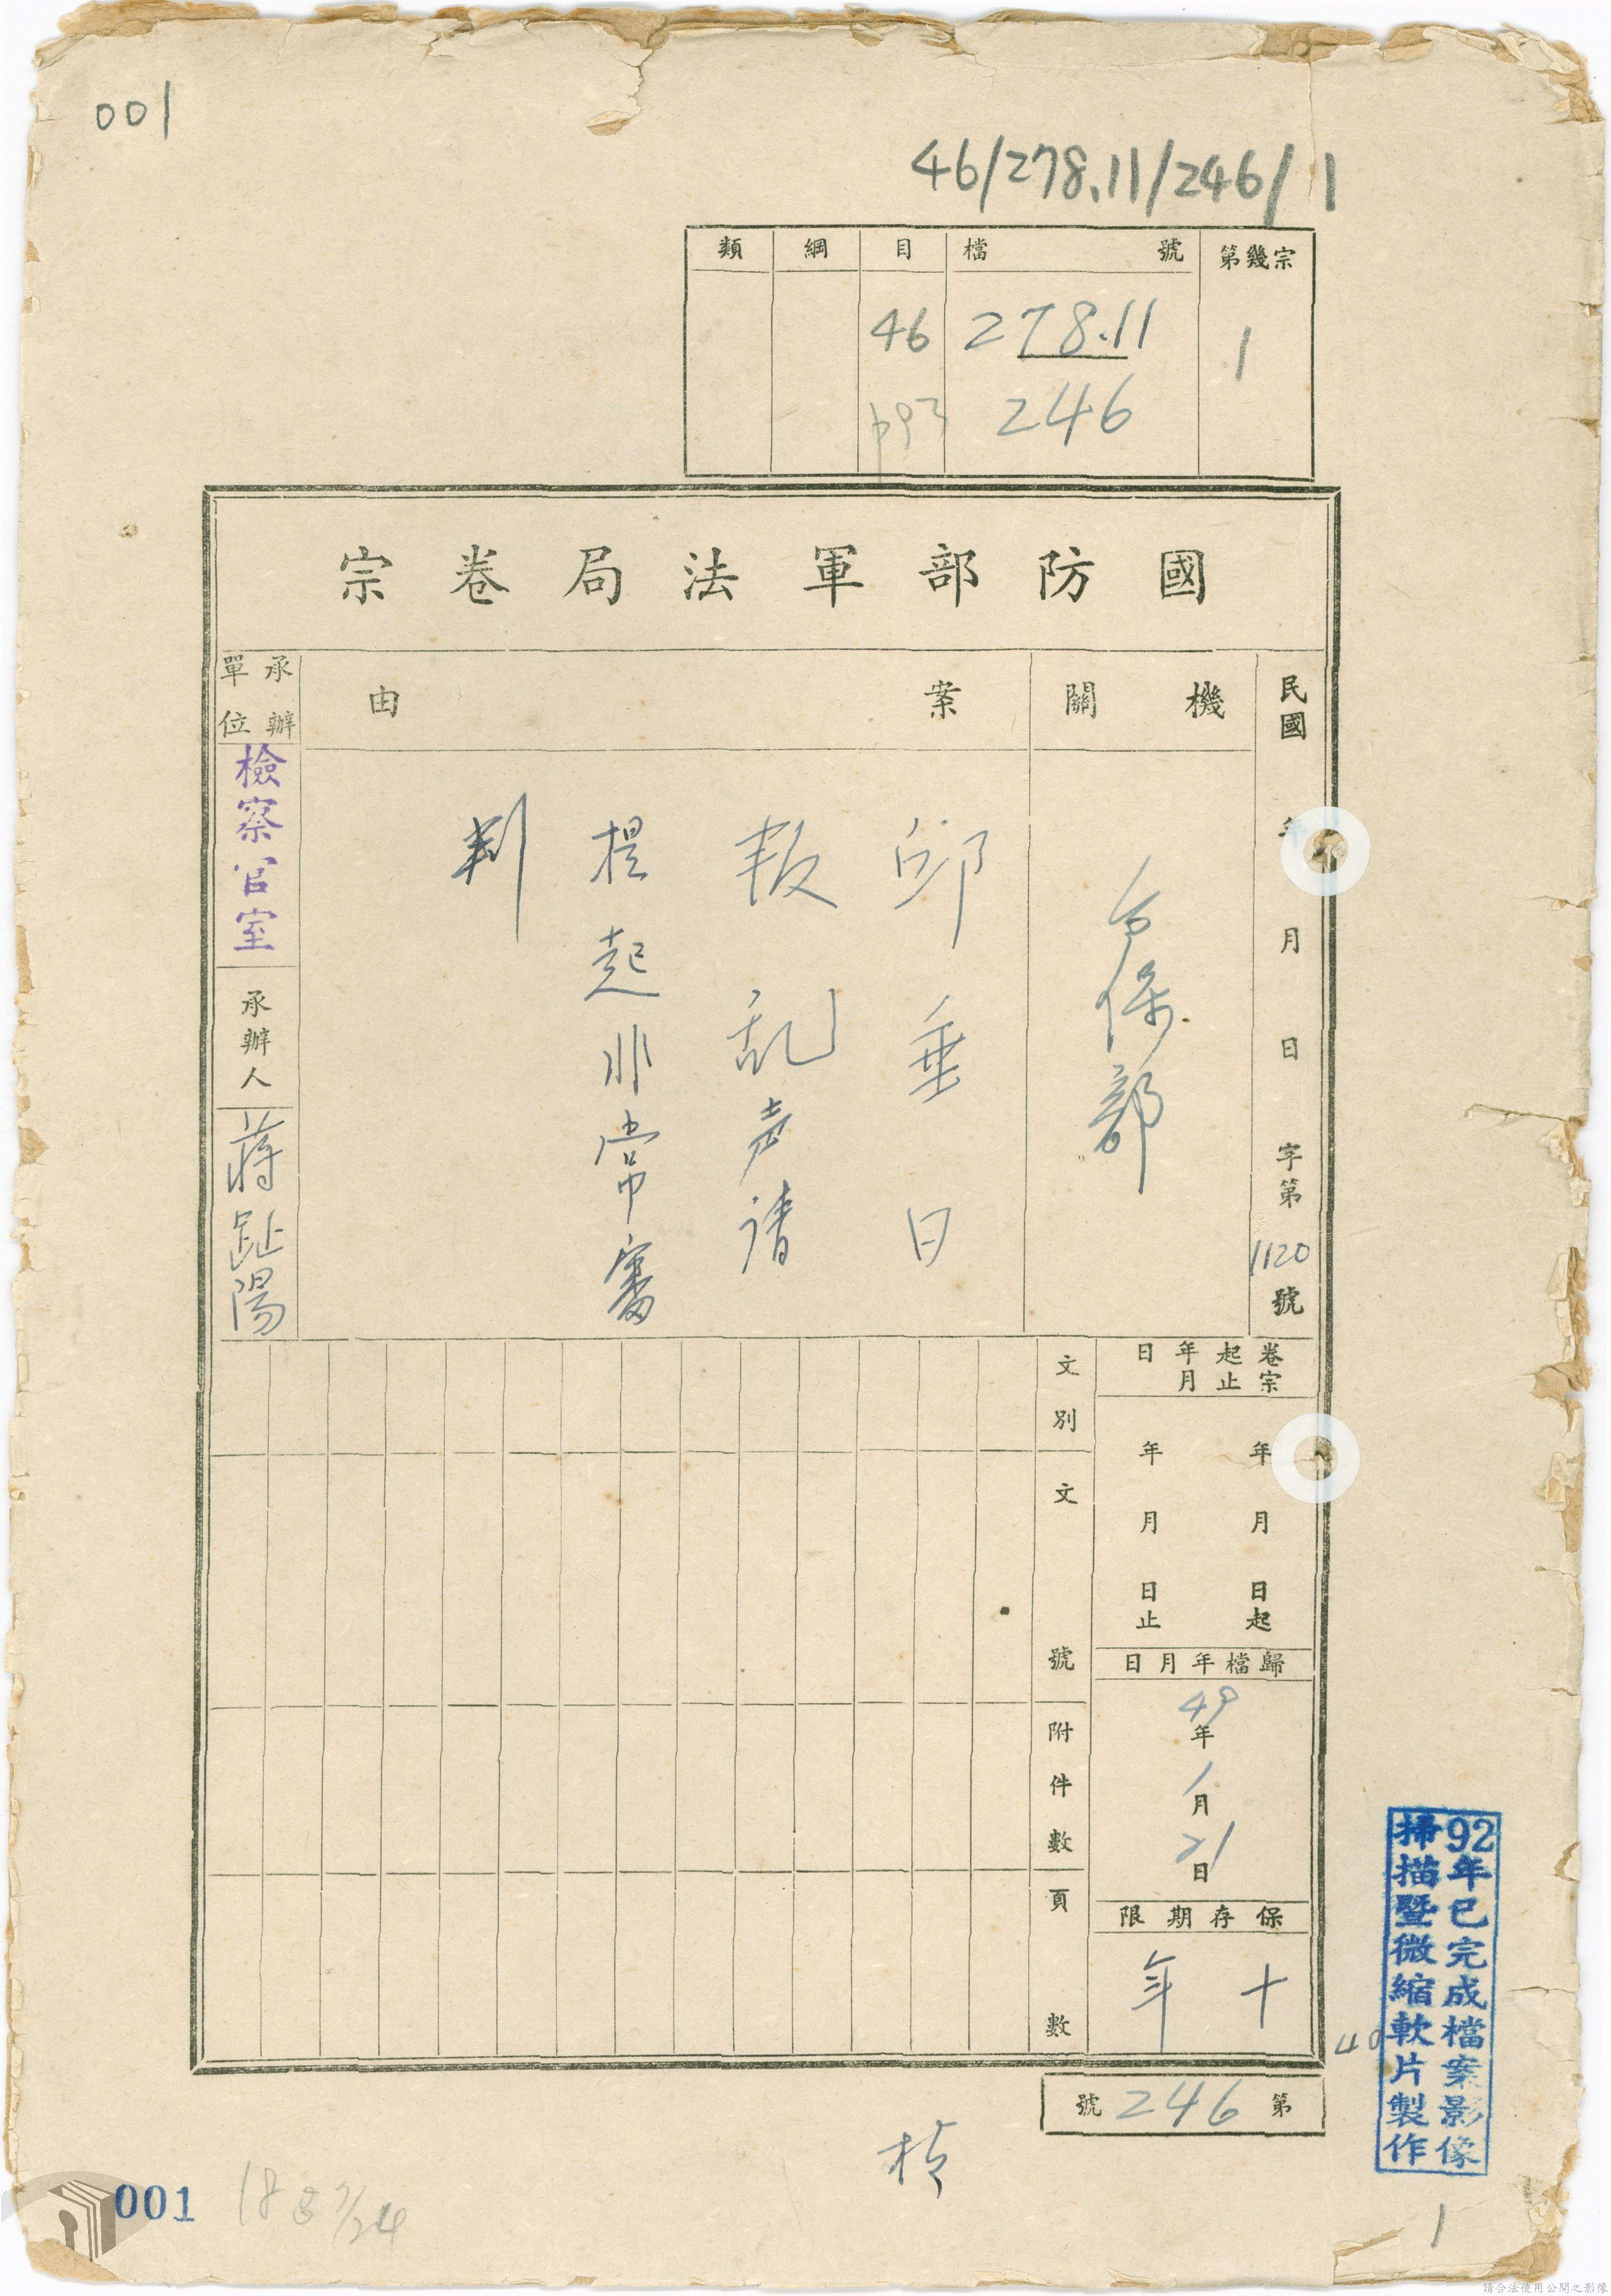 001
46/278.11/246/1
類 綱 目 檔號 第幾宗
46 278.11 1
246
國防部軍法局卷宗
民國 年 月 日 字第1120號
機關
台保部
案由
邱垂日
叛乱声請
提起非常審
判
承辦單位
檢察官室
承辦人
蔣趾陽
卷宗起止年月日
年 月 日起
年 月 日止
歸檔年月日
49年1月21日
保存期限
十年
文別
文號
附件數
頁數
第246號
92年已完成檔案影像
掃描暨微縮軟片製作
40
001
1
請合法使用公開之影像